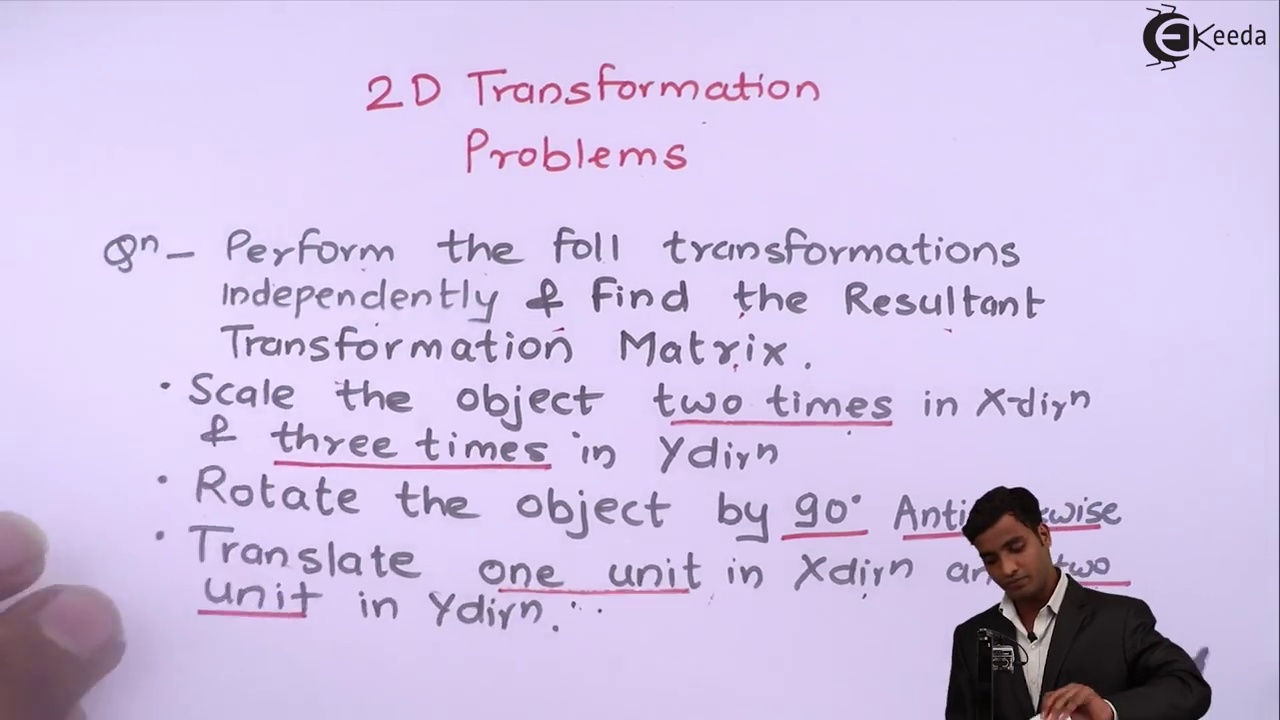 EKeeda
2D Transformation
Problems
Qn - Perform the foll transformations
independently & find the Resultant
Transformation Matrix.
• Scale the object two times in X-dirn
& three times in Ydirn
• Rotate the object by 90°
• Translate one unit in Xdirn two
unit in Ydirn.